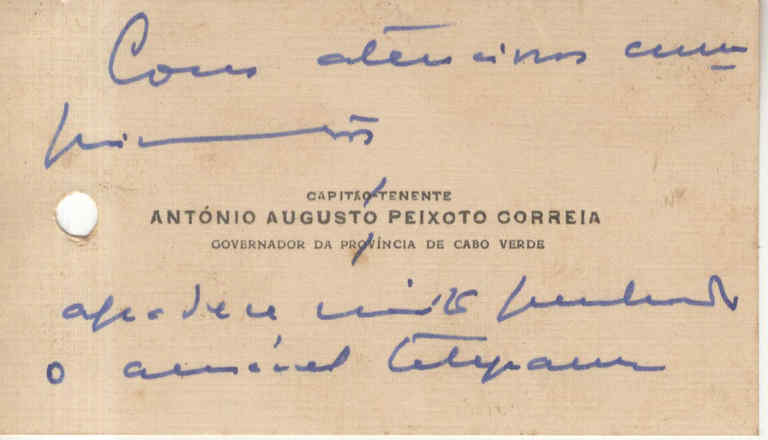 Com atenciosos cum-
primentos
CAPITÃO-TENENTE
ANTÓNIO AUGUSTO PEIXOTO CORREIA
GOVERNADOR DA PROVÍNCIA DE CABO VERDE
agradece muito penhorado
o amável telegrama